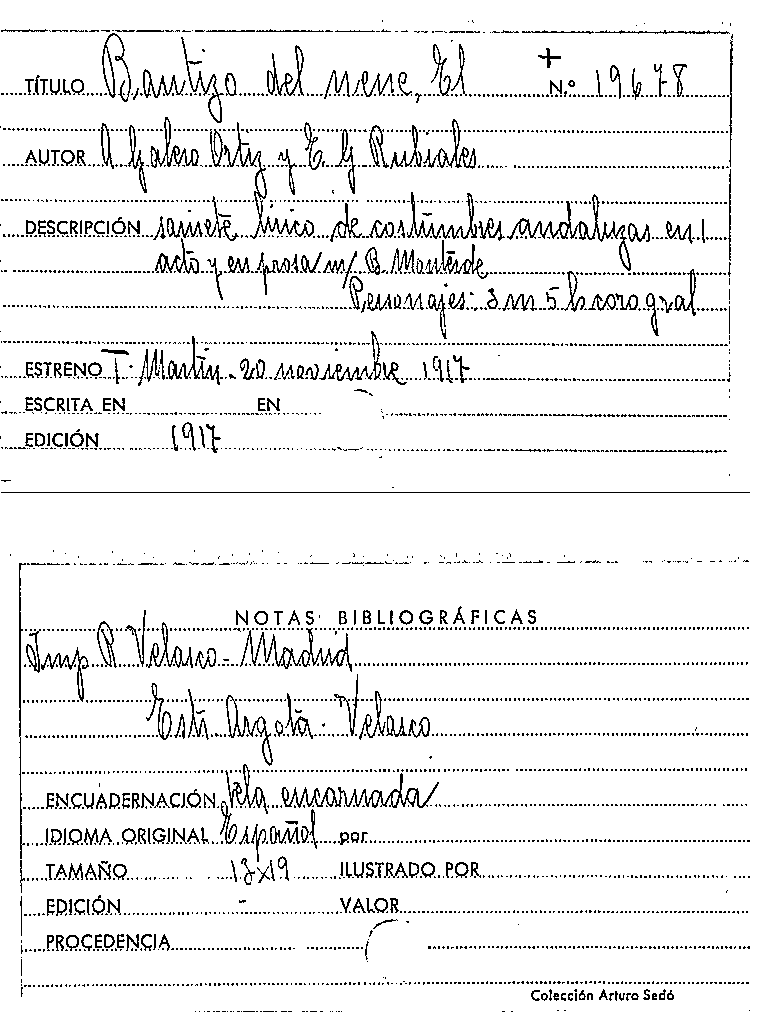 +
TÍTULO Bautizo del nene, El N.º 19678
AUTOR A Galero Ortiz y E G Rubiales
DESCRIPCIÓN sainete lírico de costumbres andaluzas en 1
acto y en prosa m/ B. Monterde
Personajes: 3 m 5 h coro gral
ESTRENO T. Martín - 20 noviembre 1917
ESCRITA EN EN
EDICIÓN 1917
NOTAS BIBLIOGRÁFICAS
Imp R Velasco - Madrid
Estr Argota - Velasco
ENCUADERNACIÓN tela encarnada
IDIOMA ORIGINAL Español por
TAMAÑO 13x19 ILUSTRADO POR
EDICIÓN - VALOR
PROCEDENCIA
Colección Arturo Sedó